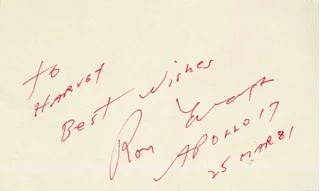 To
HARVEY
Best Wishes
Ron Evans
APOLLO 17
25 MAR 81